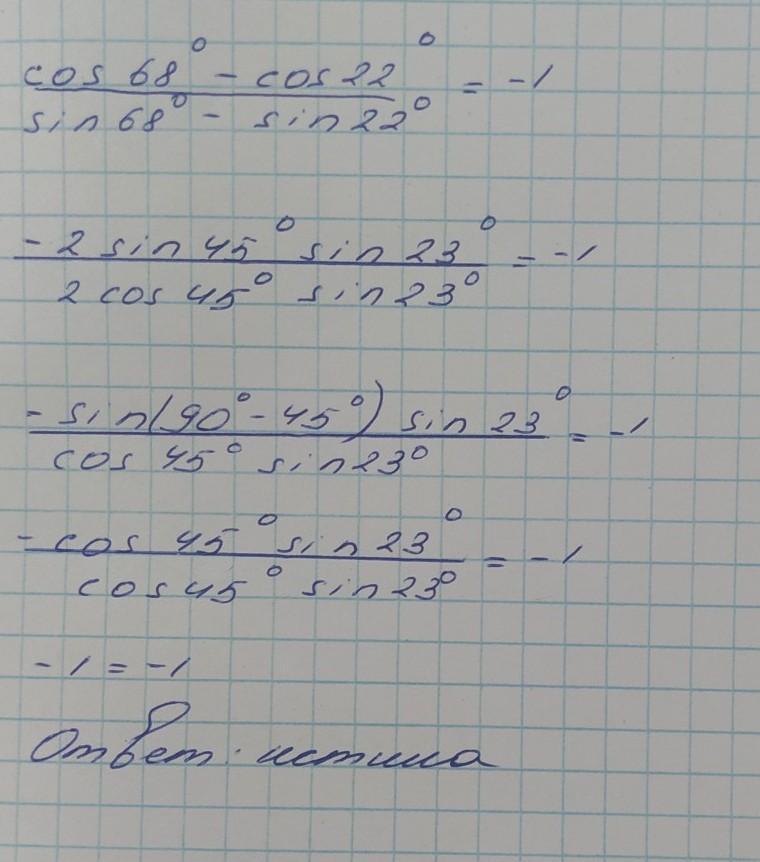 cos 68° - cos 22°
sin 68° - sin 22° = -1
-2 sin 45° sin 23°
2 cos 45° sin 23° = -1
-sin(90° - 45°) sin 23°
cos 45° sin 23° = -1
-cos 45° sin 23°
cos 45° sin 23° = -1
-1 = -1
Ответ: истина